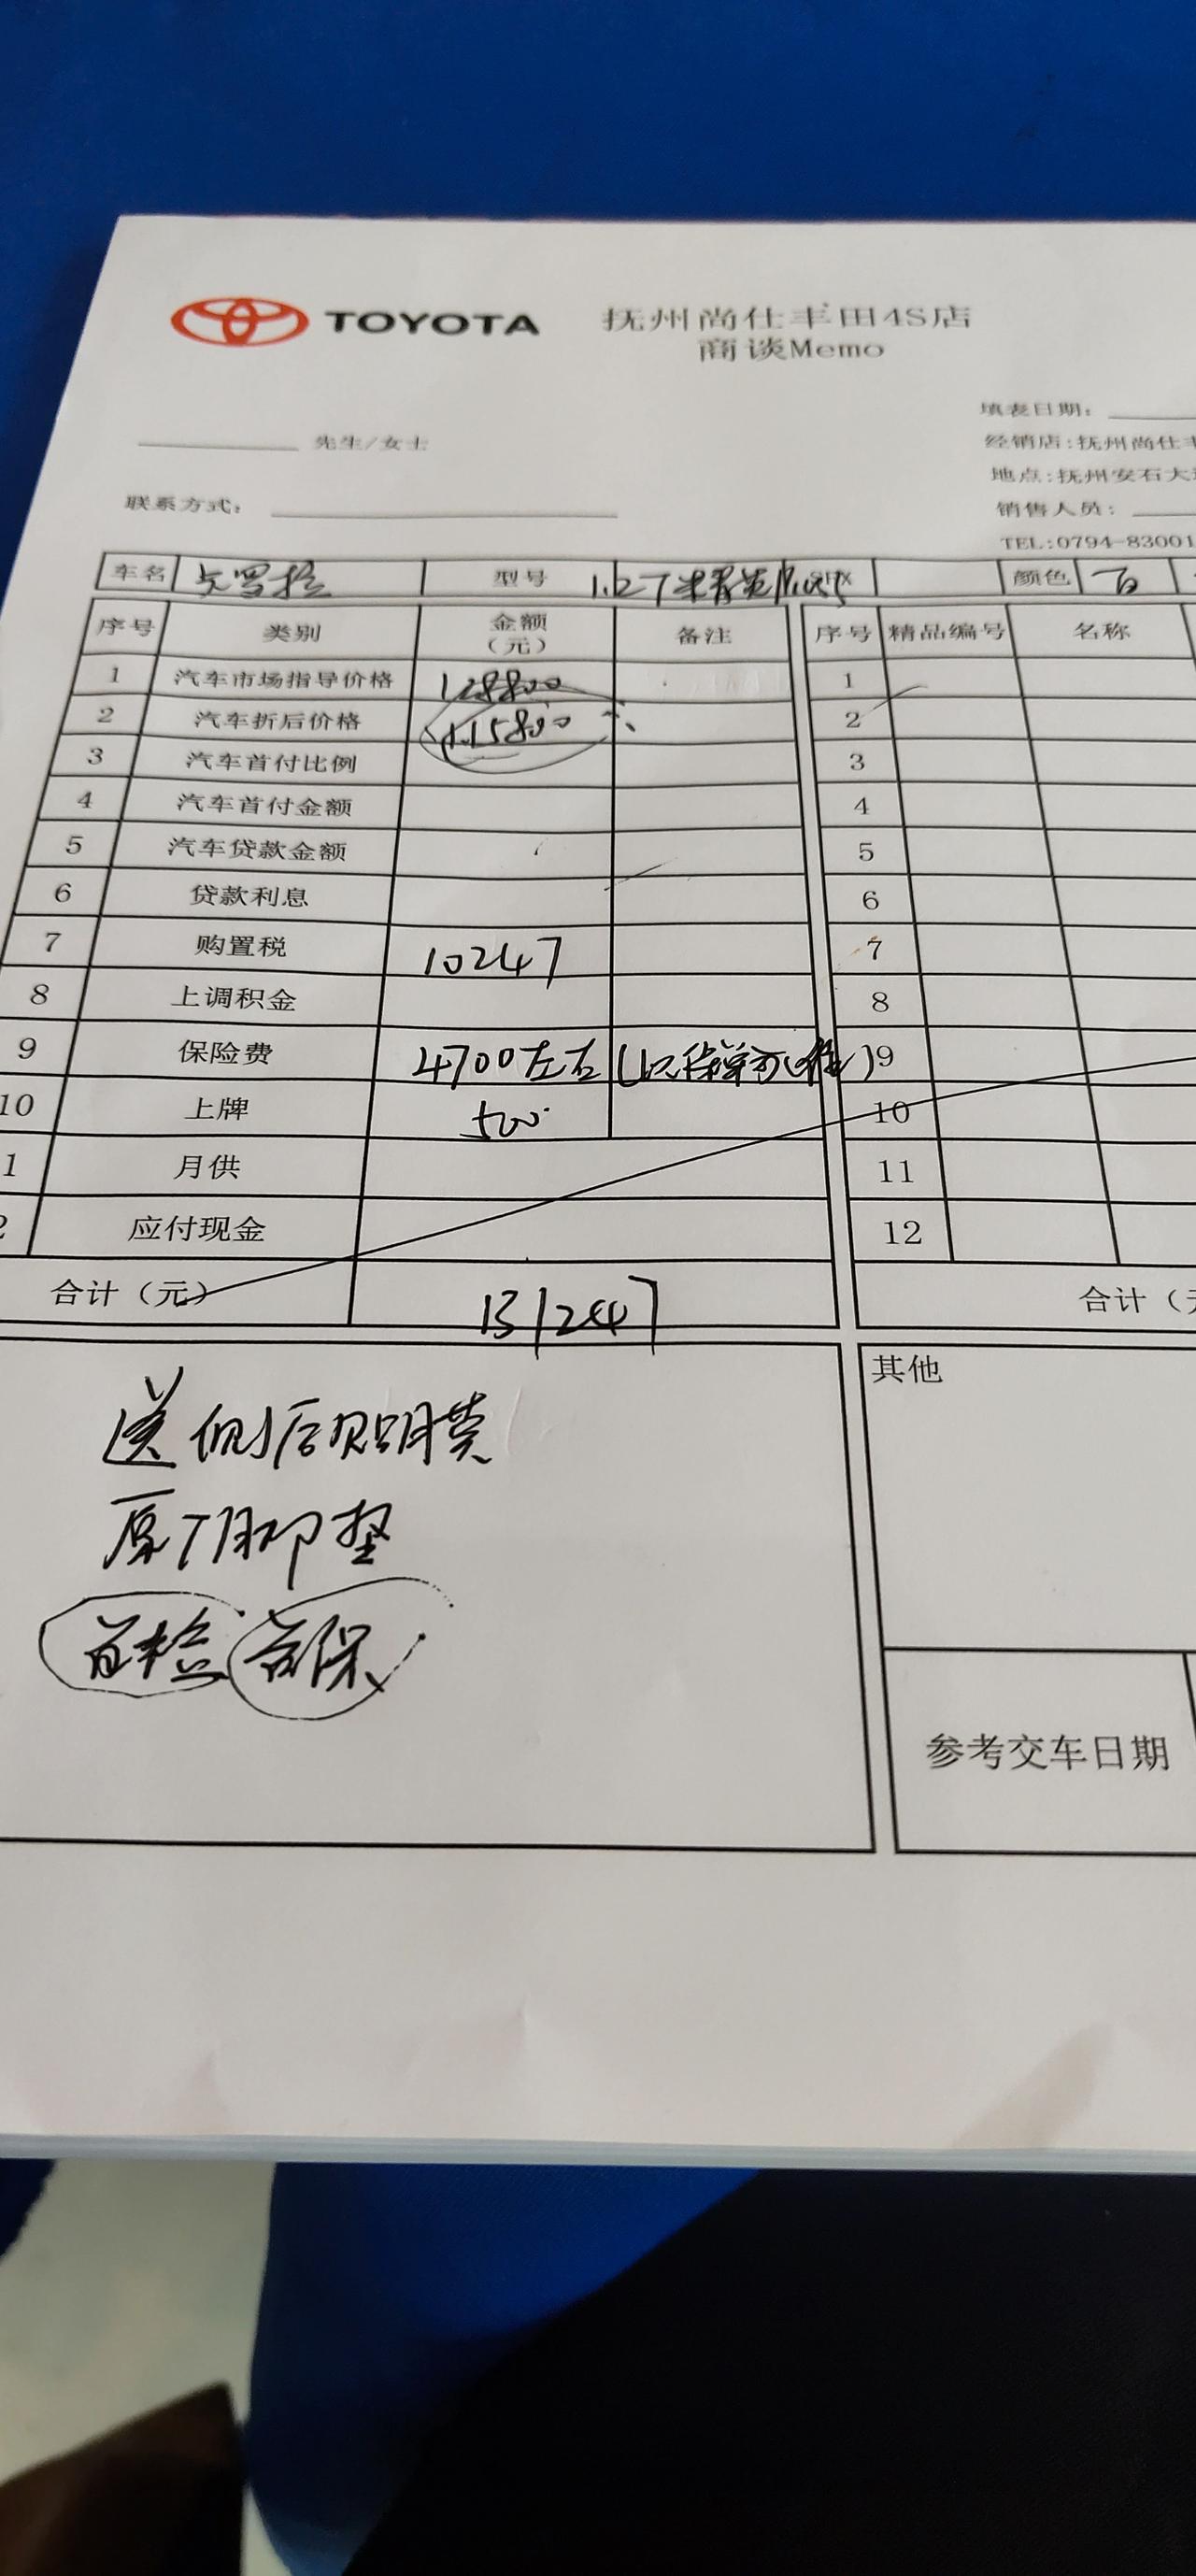 TOYOTA 抚州尚仕丰田4S店
商谈Memo
填表日期：
先生/女士
经销店：抚州尚仕丰
地点：抚州安石大
联系方式：
销售人员：
TEL:0794-83001
车名 卡罗拉 型号 1.2T 精英 颜色 白
序号 类别 金额（元） 备注 序号 精品编号 名称
1 汽车市场指导价格 128800 1
2 汽车折后价格 115800 2
3 汽车首付比例 3
4 汽车首付金额 4
5 汽车贷款金额 5
6 贷款利息 6
7 购置税 10247 7
8 上调积金 8
9 保险费 4700左右 (以保单为准) 9
10 上牌 500 10
1 月供 11
2 应付现金 12
合计（元） 131247 合计（
送侧后贴膜
原厂脚垫
首保
其他
参考交车日期